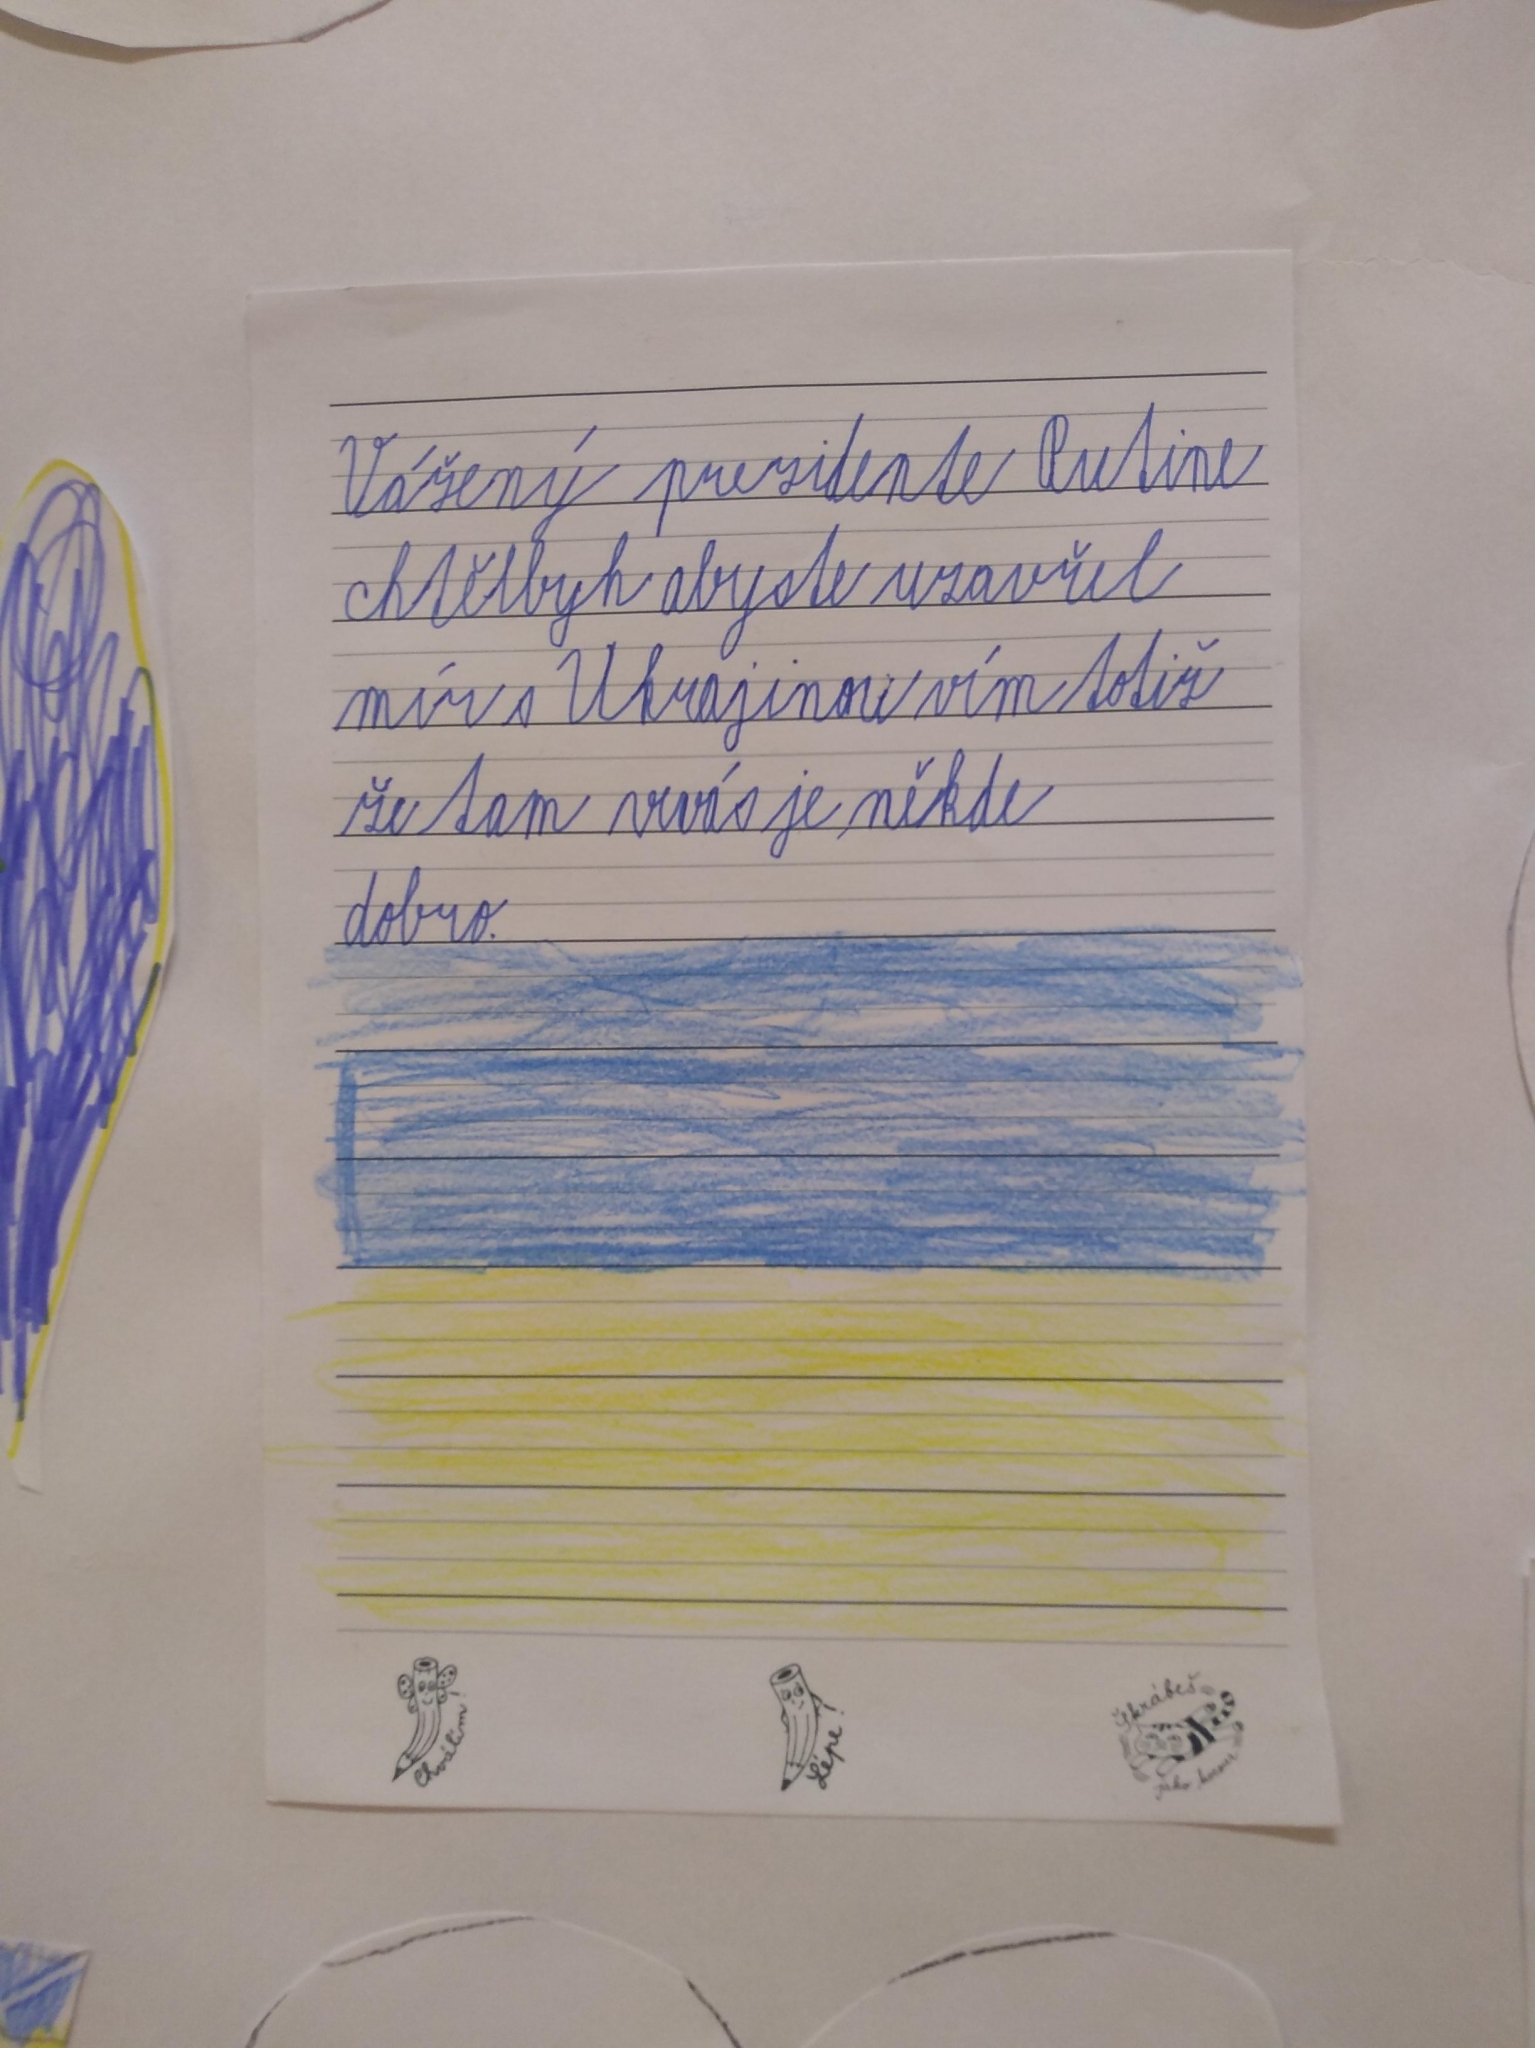 Vážený prezidente Putine
chtělbyh abyste uzavřel
mír s Ukrajinou vím totiž
že tam vuvás je někde
dobro.
Chválím!
Lépe!
Škrábeš
jako kocour